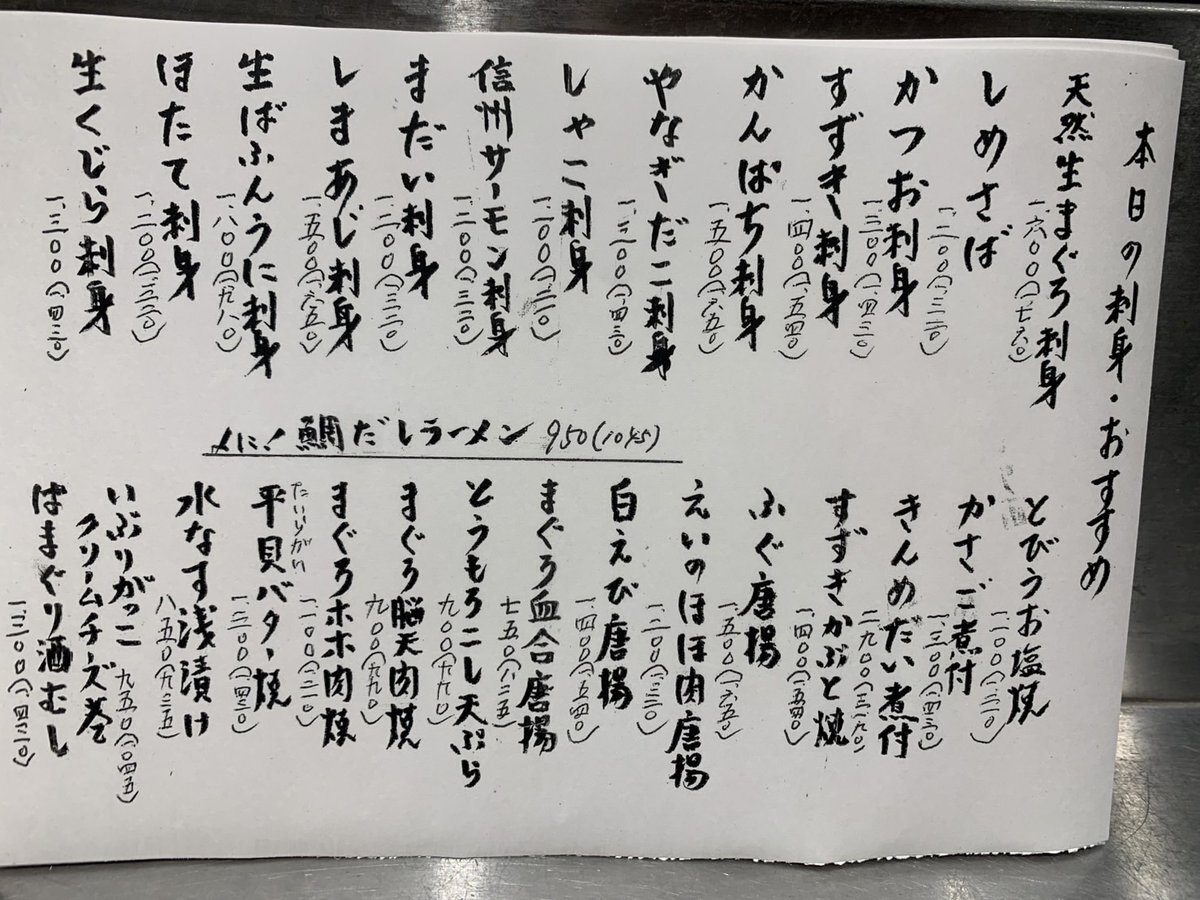 本日の刺身・おすすめ
天然生まぐろ刺身
一、六〇〇(一、七六〇)
しめさば
一、二〇〇(一、三二〇)
かつお刺身
一、三〇〇(一、四三〇)
すずき刺身
一、四〇〇(一、五四〇)
かんぱち刺身
一、五〇〇(一、六五〇)
やなぎだこ刺身
一、三〇〇(一、四三〇)
しゃこ刺身
一、二〇〇(一、三二〇)
信州サーモン刺身
一、二〇〇(一、三二〇)
まだい刺身
一、二〇〇(一、三二〇)
しまあじ刺身
一、五〇〇(一、六五〇)
生ばふんうに刺身
一、八〇〇(一、九八〇)
ほたて刺身
一、二〇〇(一、三二〇)
生くじら刺身
一、三〇〇(一、四三〇)
〆に!鯛だしラーメン 950(1045)
とびうお塩焼
かさご煮付
一、三〇〇(一、四三〇)
きんめたい煮付
二、九〇〇(三、一九〇)
すずきかぶと焼
一、四〇〇(一、五四〇)
ふぐ唐揚
一、五〇〇(一、六五〇)
えいのほほ肉唐揚
一、二〇〇(一、三二〇)
白えび唐揚
一、四〇〇(一、五四〇)
まぐろ血合唐揚
七五〇(八二五)
とうもろこし天ぷら
九〇〇(九九〇)
まぐろ脳天肉焼
九〇〇(九九〇)
まぐろホホ肉焼
平貝バター焼
たいらがい
一、三〇〇(一、四三〇)
水なす浅漬け
八五〇(九三五)
いぶりがっこ
クリームチーズ巻
九五〇(一〇四五)
はまぐり酒むし
一、三〇〇(一、四三〇)